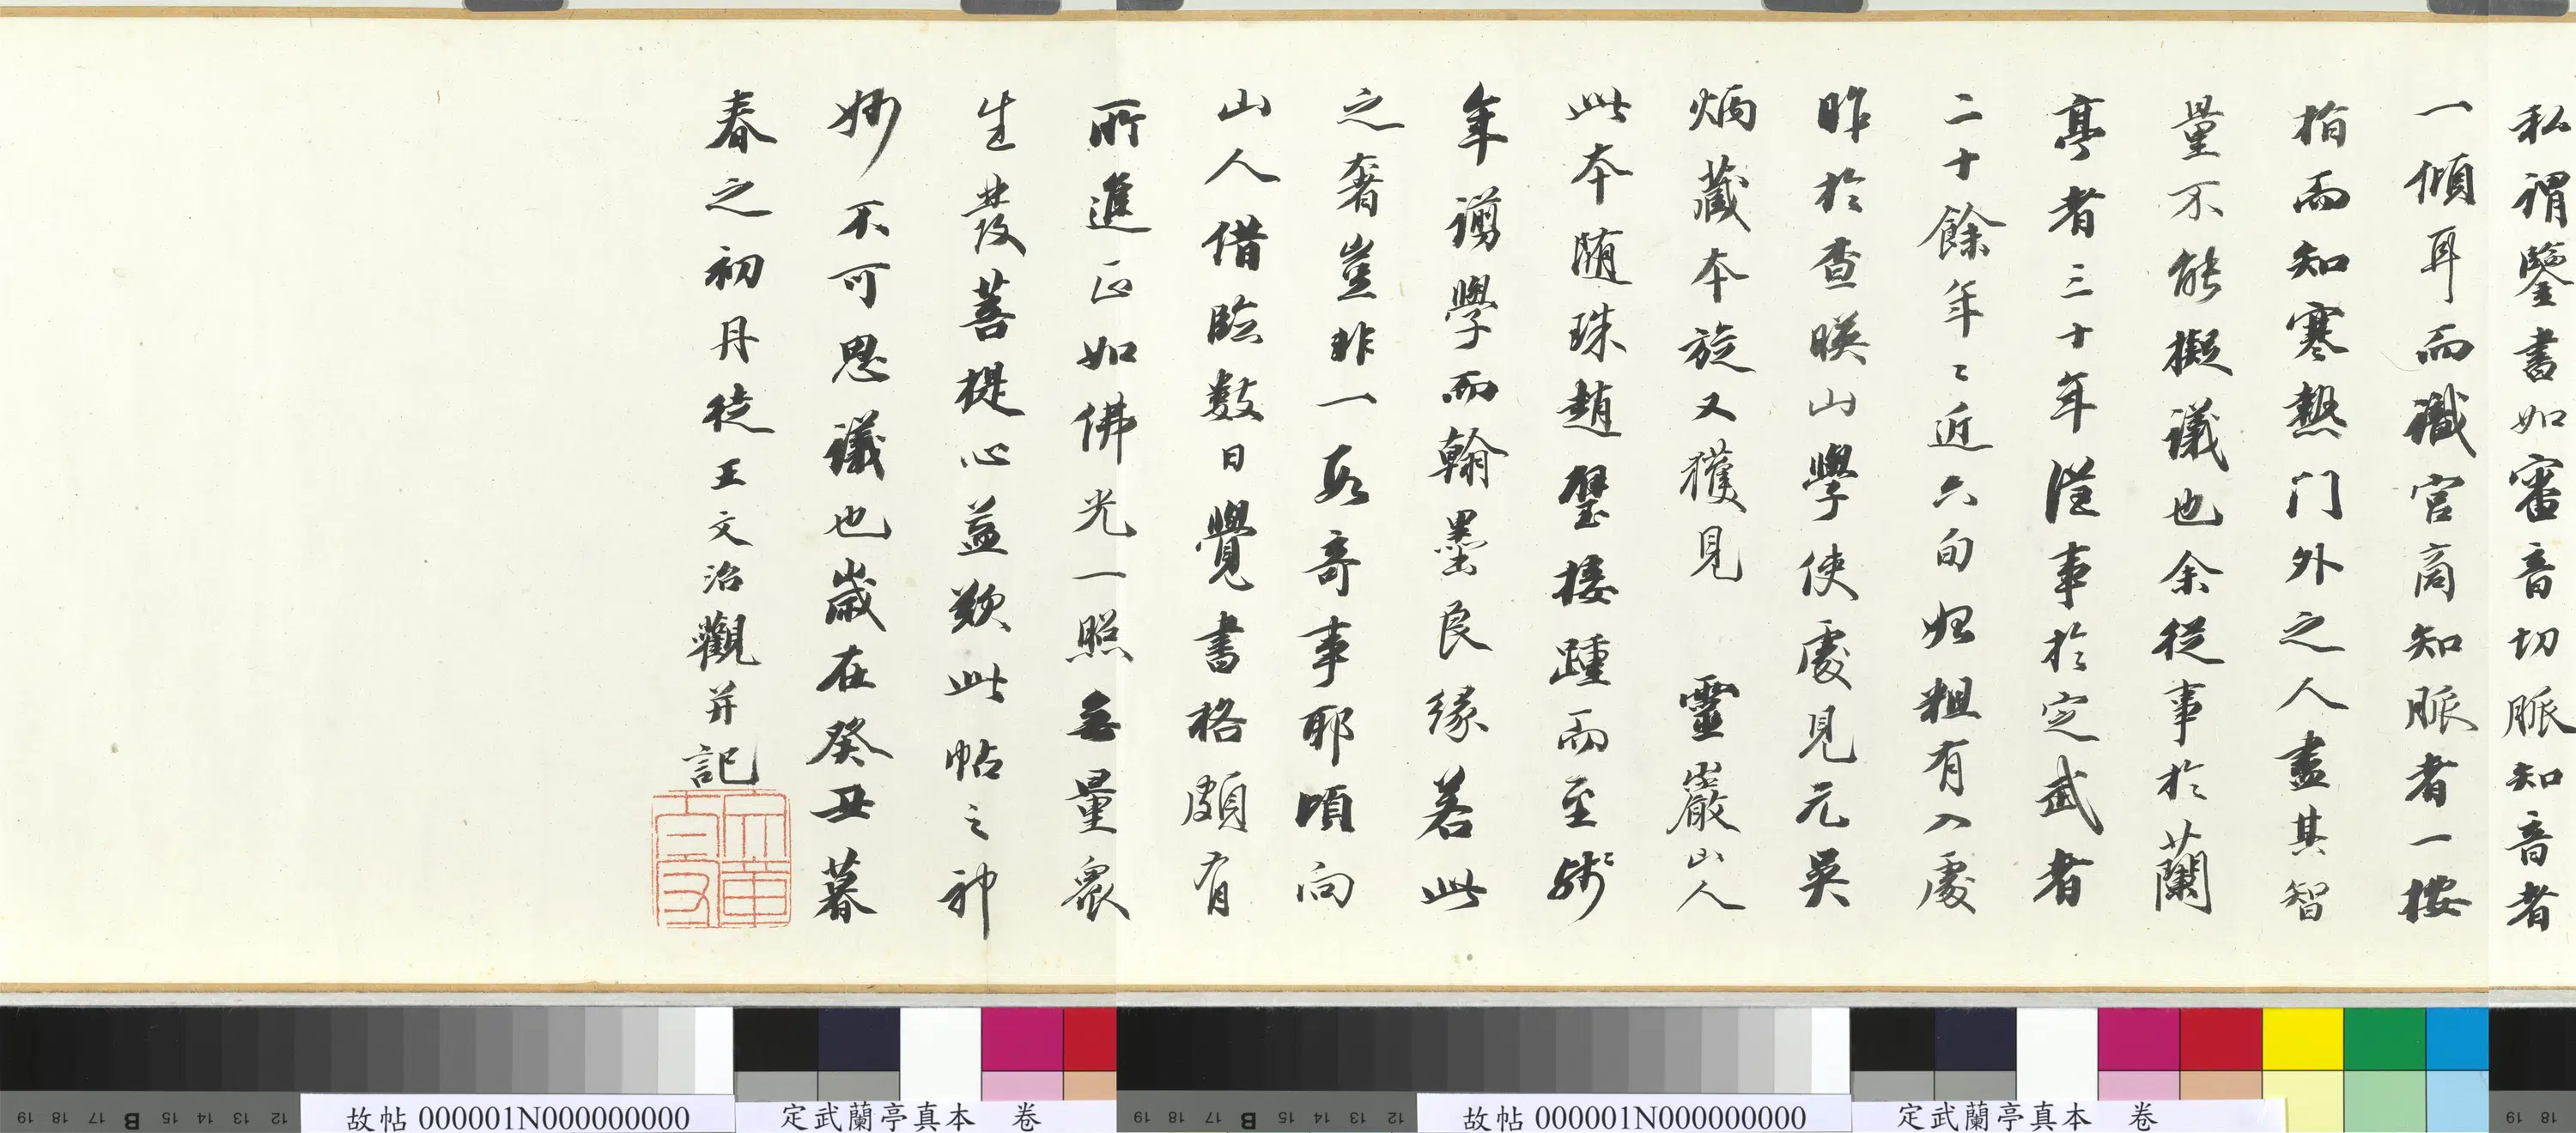 私謂鑒書如審音切脈知音者
一傾耳而識宮商知脈者一按
指而知寒熱门外之人盡其智
量不能擬議也余從事於蘭
亭者三十年從事於定武者
二十餘年〻近六旬始粗有入處
昨於查暎山學使處見元吳
炳藏本旋又獲見 靈巖山人
此本随珠趙璧接踵而至殘
年謭學而翰墨良緣若此
之奢豈非一段奇事耶頃向
山人借臨數日覺書格頗有
所進正如佛光一照無量衆
生發菩提心益歎此帖之神
妙不可思議也歲在癸丑暮
春之初丹徒王文治觀并記
故帖 000001N000000000 定武蘭亭真本 卷
故帖 000001N000000000 定武蘭亭真本 卷
19 18 17 B 15 14 13 12
19 18 17 B 15 14 13 12
19 18